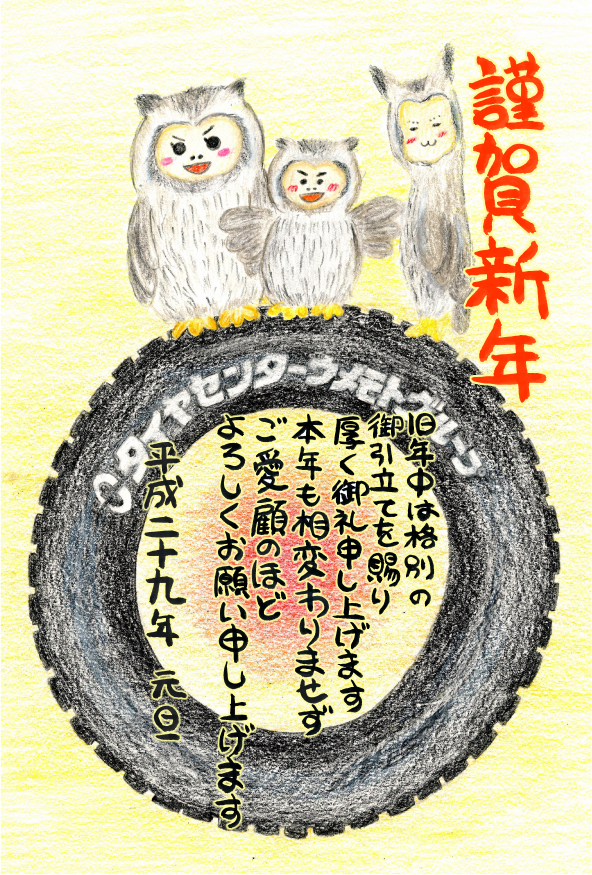 謹賀新年
タイヤセンターウメモトグループ
旧年中は格別の
御引立てを賜り
厚く御礼申し上げます
本年も相変わりませず
ご愛顧のほど
よろしくお願い申し上げます
平成二十九年 元旦